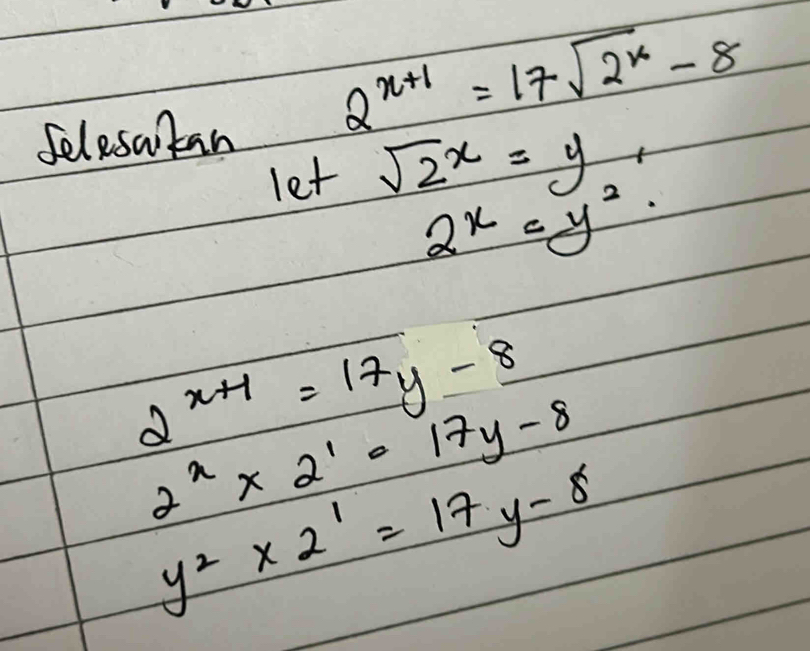 Selesaikan 2^{x+1} = 17√2^x - 8
let √2^x = y,
2^x = y².
2^{x+1} = 17y - 8
2^x × 2^1 = 17y - 8
y² × 2^1 = 17y - 8